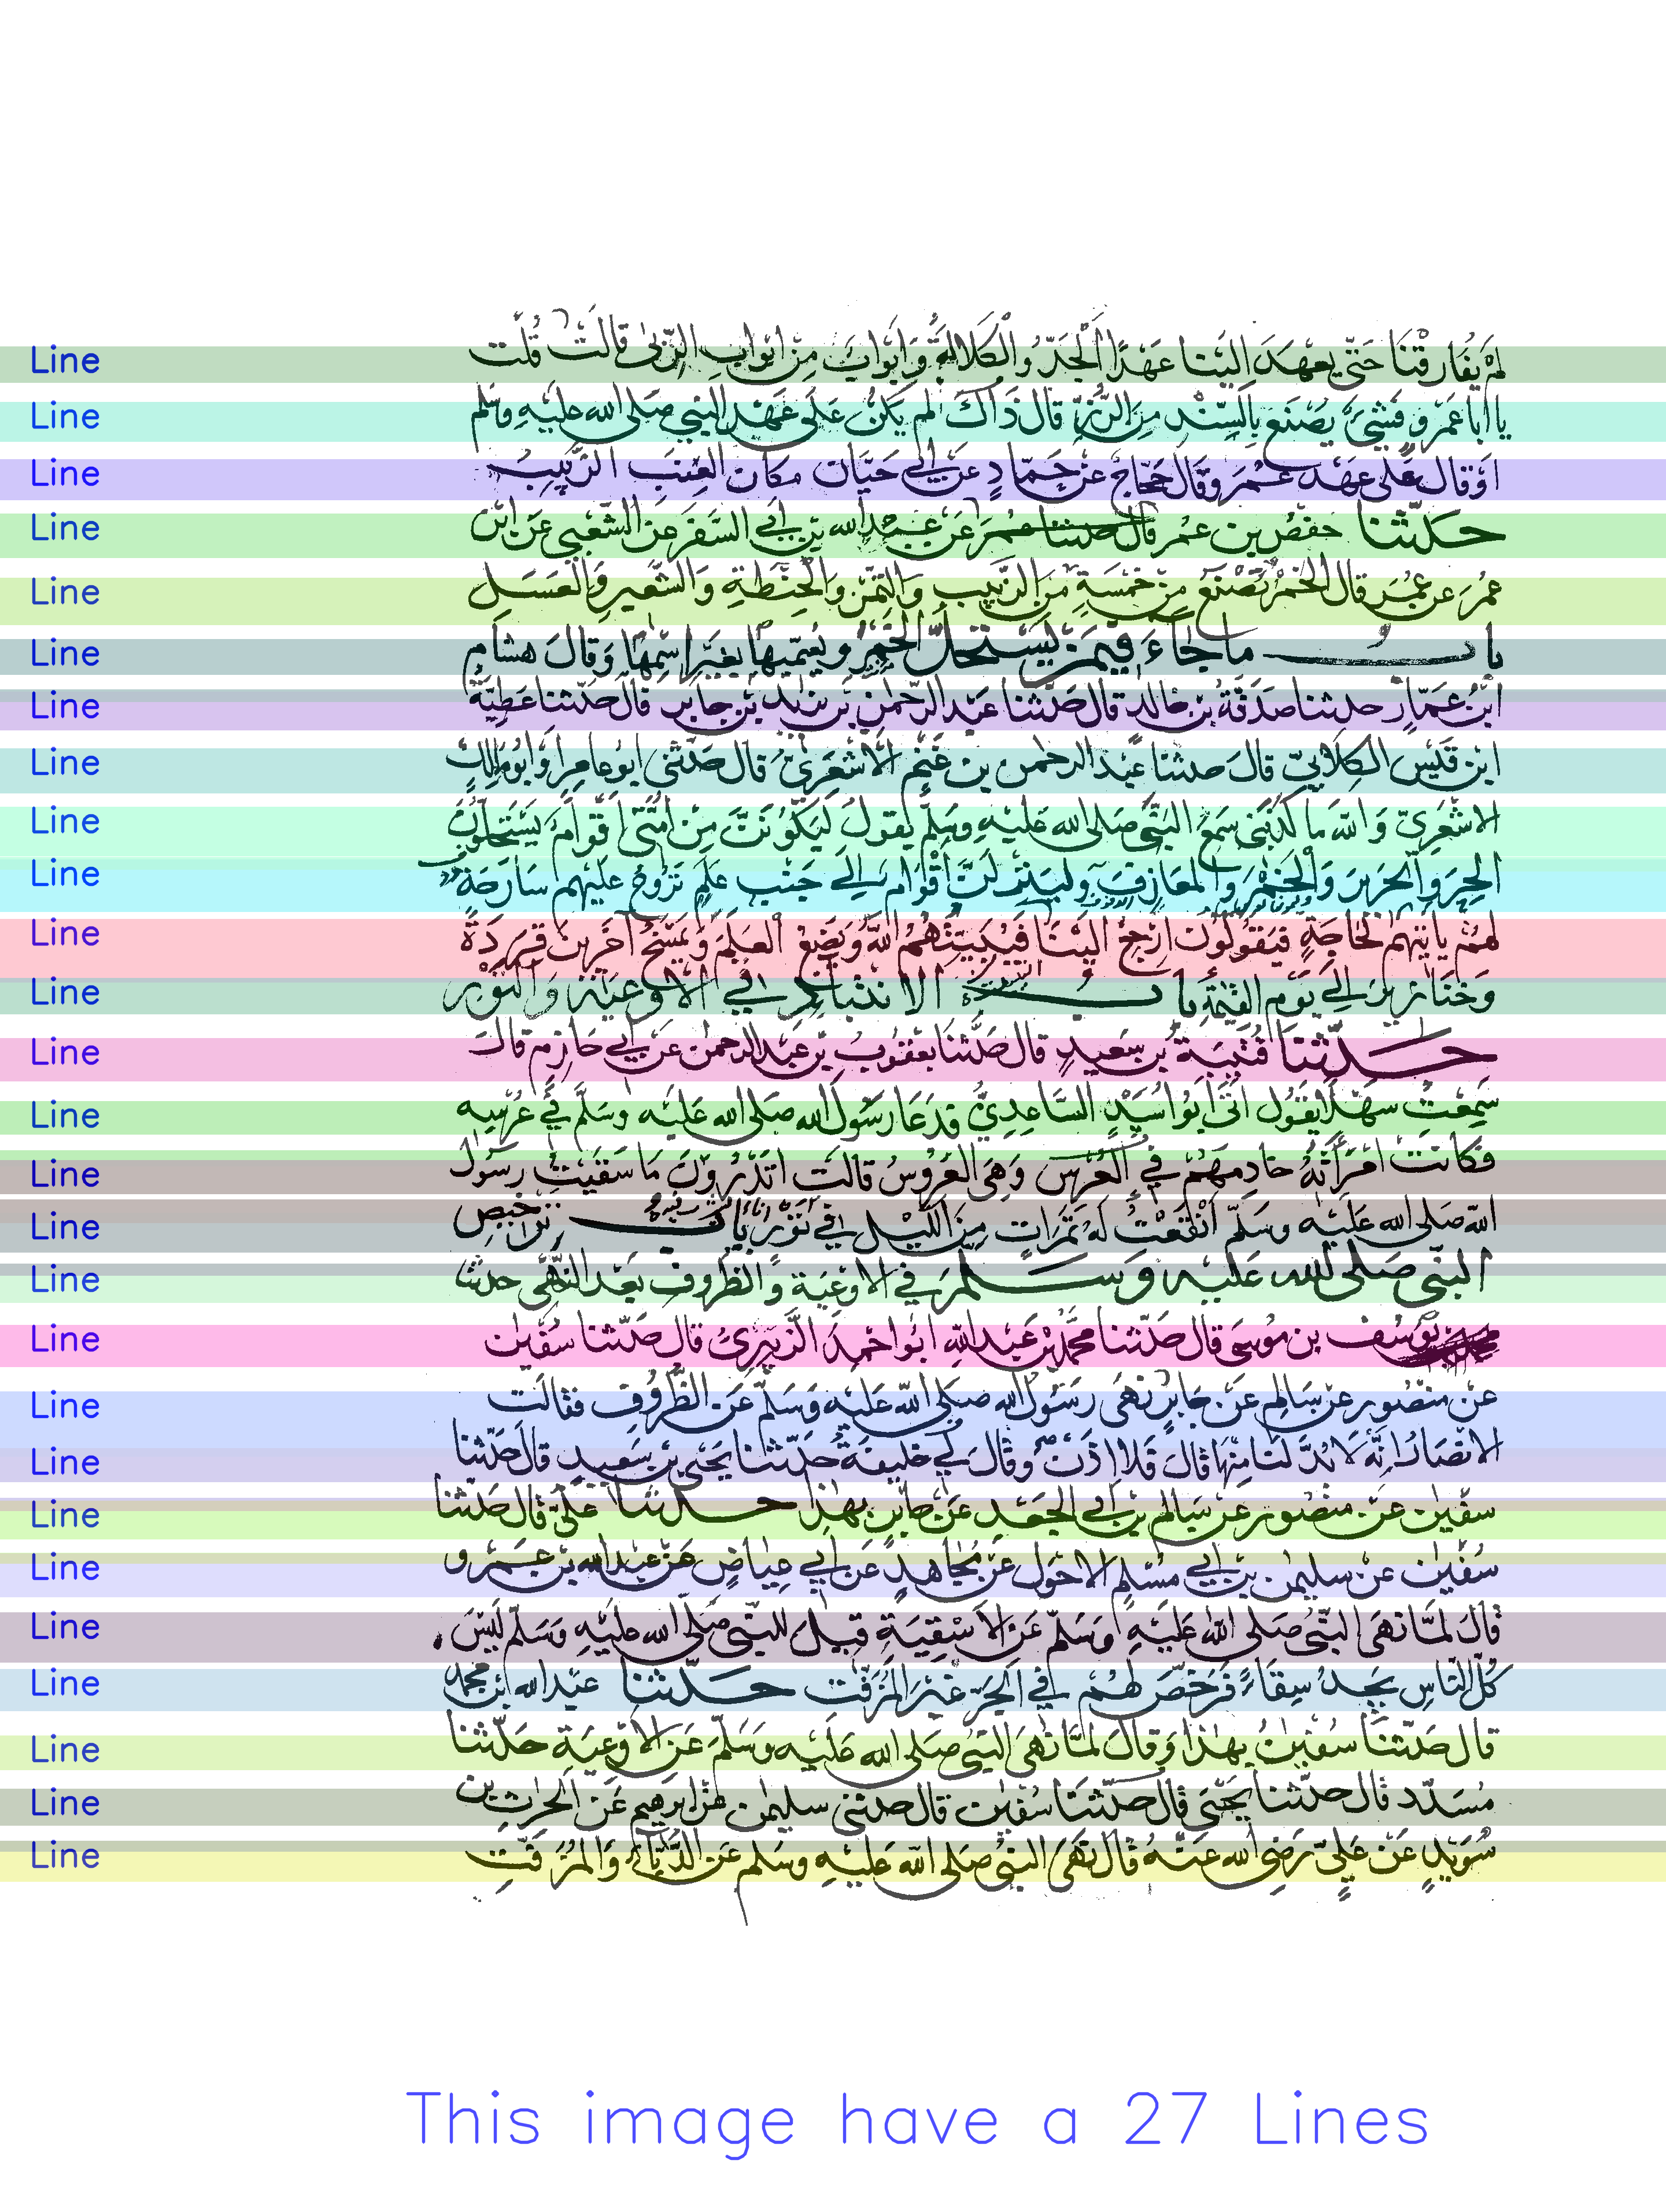 Line لم يفارقنا حتى يعهد الينا عهدا الجد والكلالة وابواب من ابواب الربى قالت قلت
Line يا ابا عمرو فشيء يصنع بالسند من الرز قال ذاك لم يكن على عهد النبي صلى الله عليه وسلم
Line او قال على عهد عمر وقال حجاج عن حماد عن ابي حيان مكان العنب الزبيب
Line حدثنا حفص بن عمر قال حدثنا عن عبد الله بن ابي السفر عن الشعبي عن ابن
Line عمر عن عمر قال الخمر تصنع من خمسة من الزبيب والتمر والحنطة والشعير والعسل
Line باب ما جاء فيمن يستحل الخمر ويسميها بغير اسمها وقال هشام
Line ابن عمار حدثنا صدقة بن خالد قال حدثنا عبد الرحمن بن يزيد بن جابر قال حدثنا عطية
Line ابن قيس الكلابي قال حدثنا عبد الرحمن بن غنم الاشعري قال حدثني ابو عامر او ابو مالك
Line الاشعري والله ما كذبني سمع النبي صلى الله عليه وسلم يقول ليكونن من امتي اقوام يستحلون
Line الحر والحرير والخمر والمعازف ولينزلن اقوام الى جنب علم تروح عليهم سارحة
Line لهم ياتيهم لحاجة فيقولون ارجع الينا فيبيتهم الله ويضع العلم ويمسخ اخرين قردة
Line وخنازير الى يوم القيمة باب الانتباذ في الاوعية والتور
Line حدثنا قتيبة بن سعيد قال حدثنا يعقوب بن عبد الرحمن عن ابي حازم قال
Line سمعت سهلا يقول اتى ابو اسيد الساعدي فدعا رسول الله صلى الله عليه وسلم في عرسه
Line فكانت امراته خادمهم في العرس وهي العروس قالت اتدرون ما سقيت رسول
Line الله صلى الله عليه وسلم انقعت له تمرات من الليل في تور باب ترخيص
Line النبي صلى الله عليه وسلم في الاوعية والظروف بعد النهى حدثنا
Line يوسف بن موسى قال حدثنا محمد بن عبد الله ابو احمد الزبيري قال حدثنا سفين
Line عن منصور عن سالم عن جابر نهى رسول الله صلى الله عليه وسلم عن الظروف فقالت
Line الانصار انه لا بد لنا منها قال فلا اذن وقال لي خليفة حدثنا يحيى بن سعيد قال حدثنا
Line سفين عن منصور عن سالم بن ابي الجعد عن جابر بهذا حدثنا علي قال حدثنا
Line سفين عن سليمن بن ابي مسلم الاحول عن مجاهد عن ابي عياض عن عبد الله بن عمرو
Line قال لما نهى النبي صلى الله عليه وسلم عن الاسقية قيل للنبي صلى الله عليه وسلم ليس
Line كل الناس يجد سقاء فرخص لهم في الجر غير المزفت حدثنا عبد الله ابن محمد
Line قال حدثنا سفين بهذا وقال لما نهى النبي صلى الله عليه وسلم عن الاوعية حدثنا
Line مسدد قال حدثنا يحيى قال حدثنا سفين قال حدثني سليمن عن ابرهيم عن الحرث بن
Line سويد عن علي رضي الله عنه قال نهى النبي صلى الله عليه وسلم عن الدباء والمزفت
This image have a 27 Lines